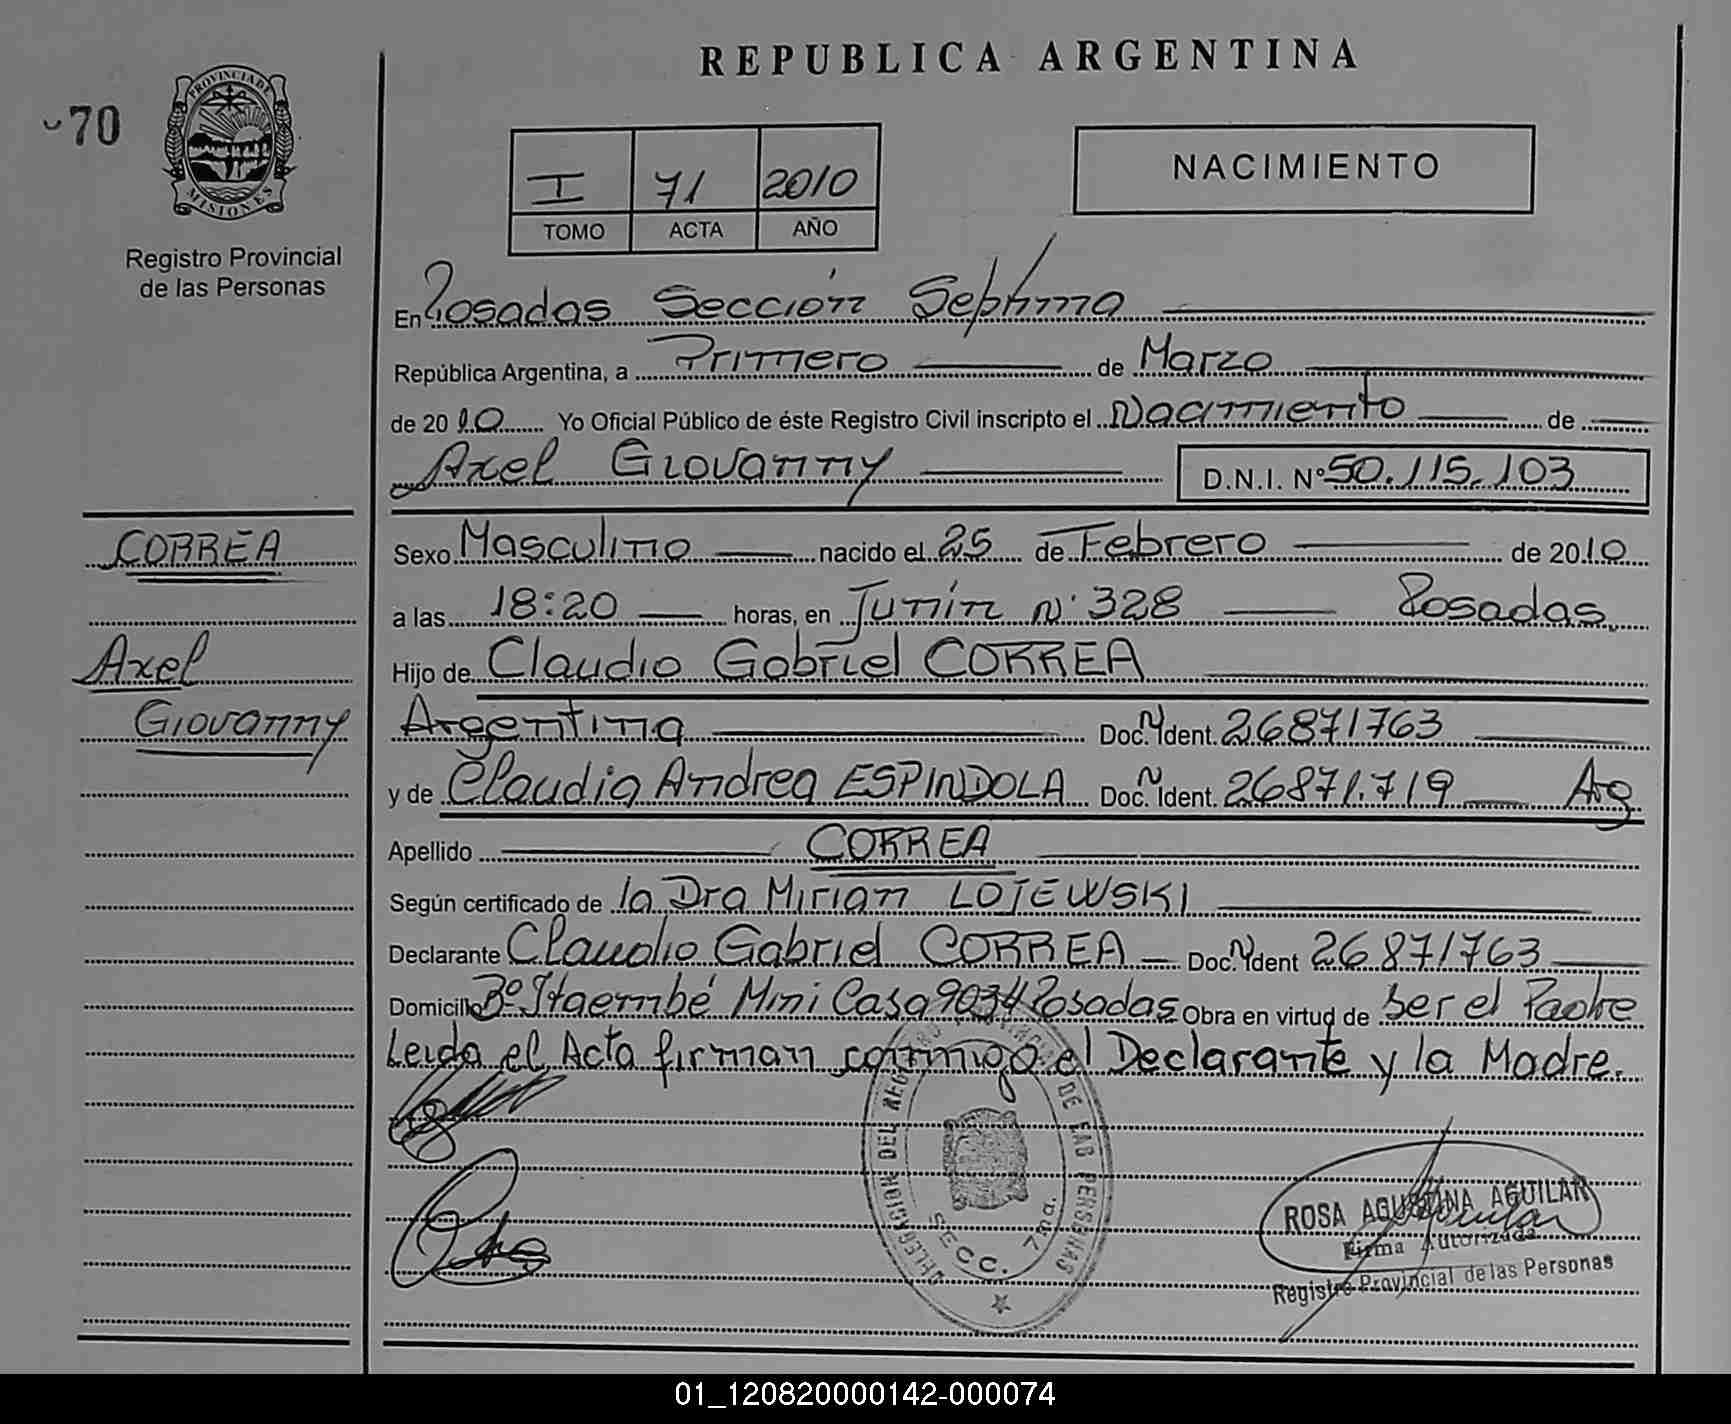 REPUBLICA ARGENTINA
70
PROVINCIA DE
MISIONES
Registro Provincial
de las Personas
I 71 2010
TOMO ACTA AÑO
NACIMIENTO
En Posadas Sección Septima
República Argentina, a Primero de Marzo
de 2010 Yo Oficial Público de éste Registro Civil inscripto el Nacimiento de
Axel Giovanny D.N.I. Nº 50.115.103
CORREA
Axel
Giovanny
Sexo Masculino nacido el 25 de Febrero de 2010
a las 18:20 horas, en Junín Nº 328 Posadas.
Hijo de Claudio Gabriel CORREA
Argentina Doc. Ident. 26871763
y de Claudia Andrea ESPINDOLA Doc. Ident. 26871.719 Arg
Apellido CORREA
Según certificado de la Dra Mirian LOJEWSKI
Declarante Claudio Gabriel CORREA Doc. Ident 26871763
Domicilio Bº Itaembé Mini Casa 9034 Posadas Obra en virtud de ser el Padre
Leida el Acta firman conmigo el Declarante y la Madre.
DELEGACION DEL REGISTRO PROVINCIAL DE LAS PERSONAS
SECC. 7ma.
ROSA AGUSTINA AGUILAR
Firma Autorizada
Registro Provincial de las Personas
01_120820000142-000074